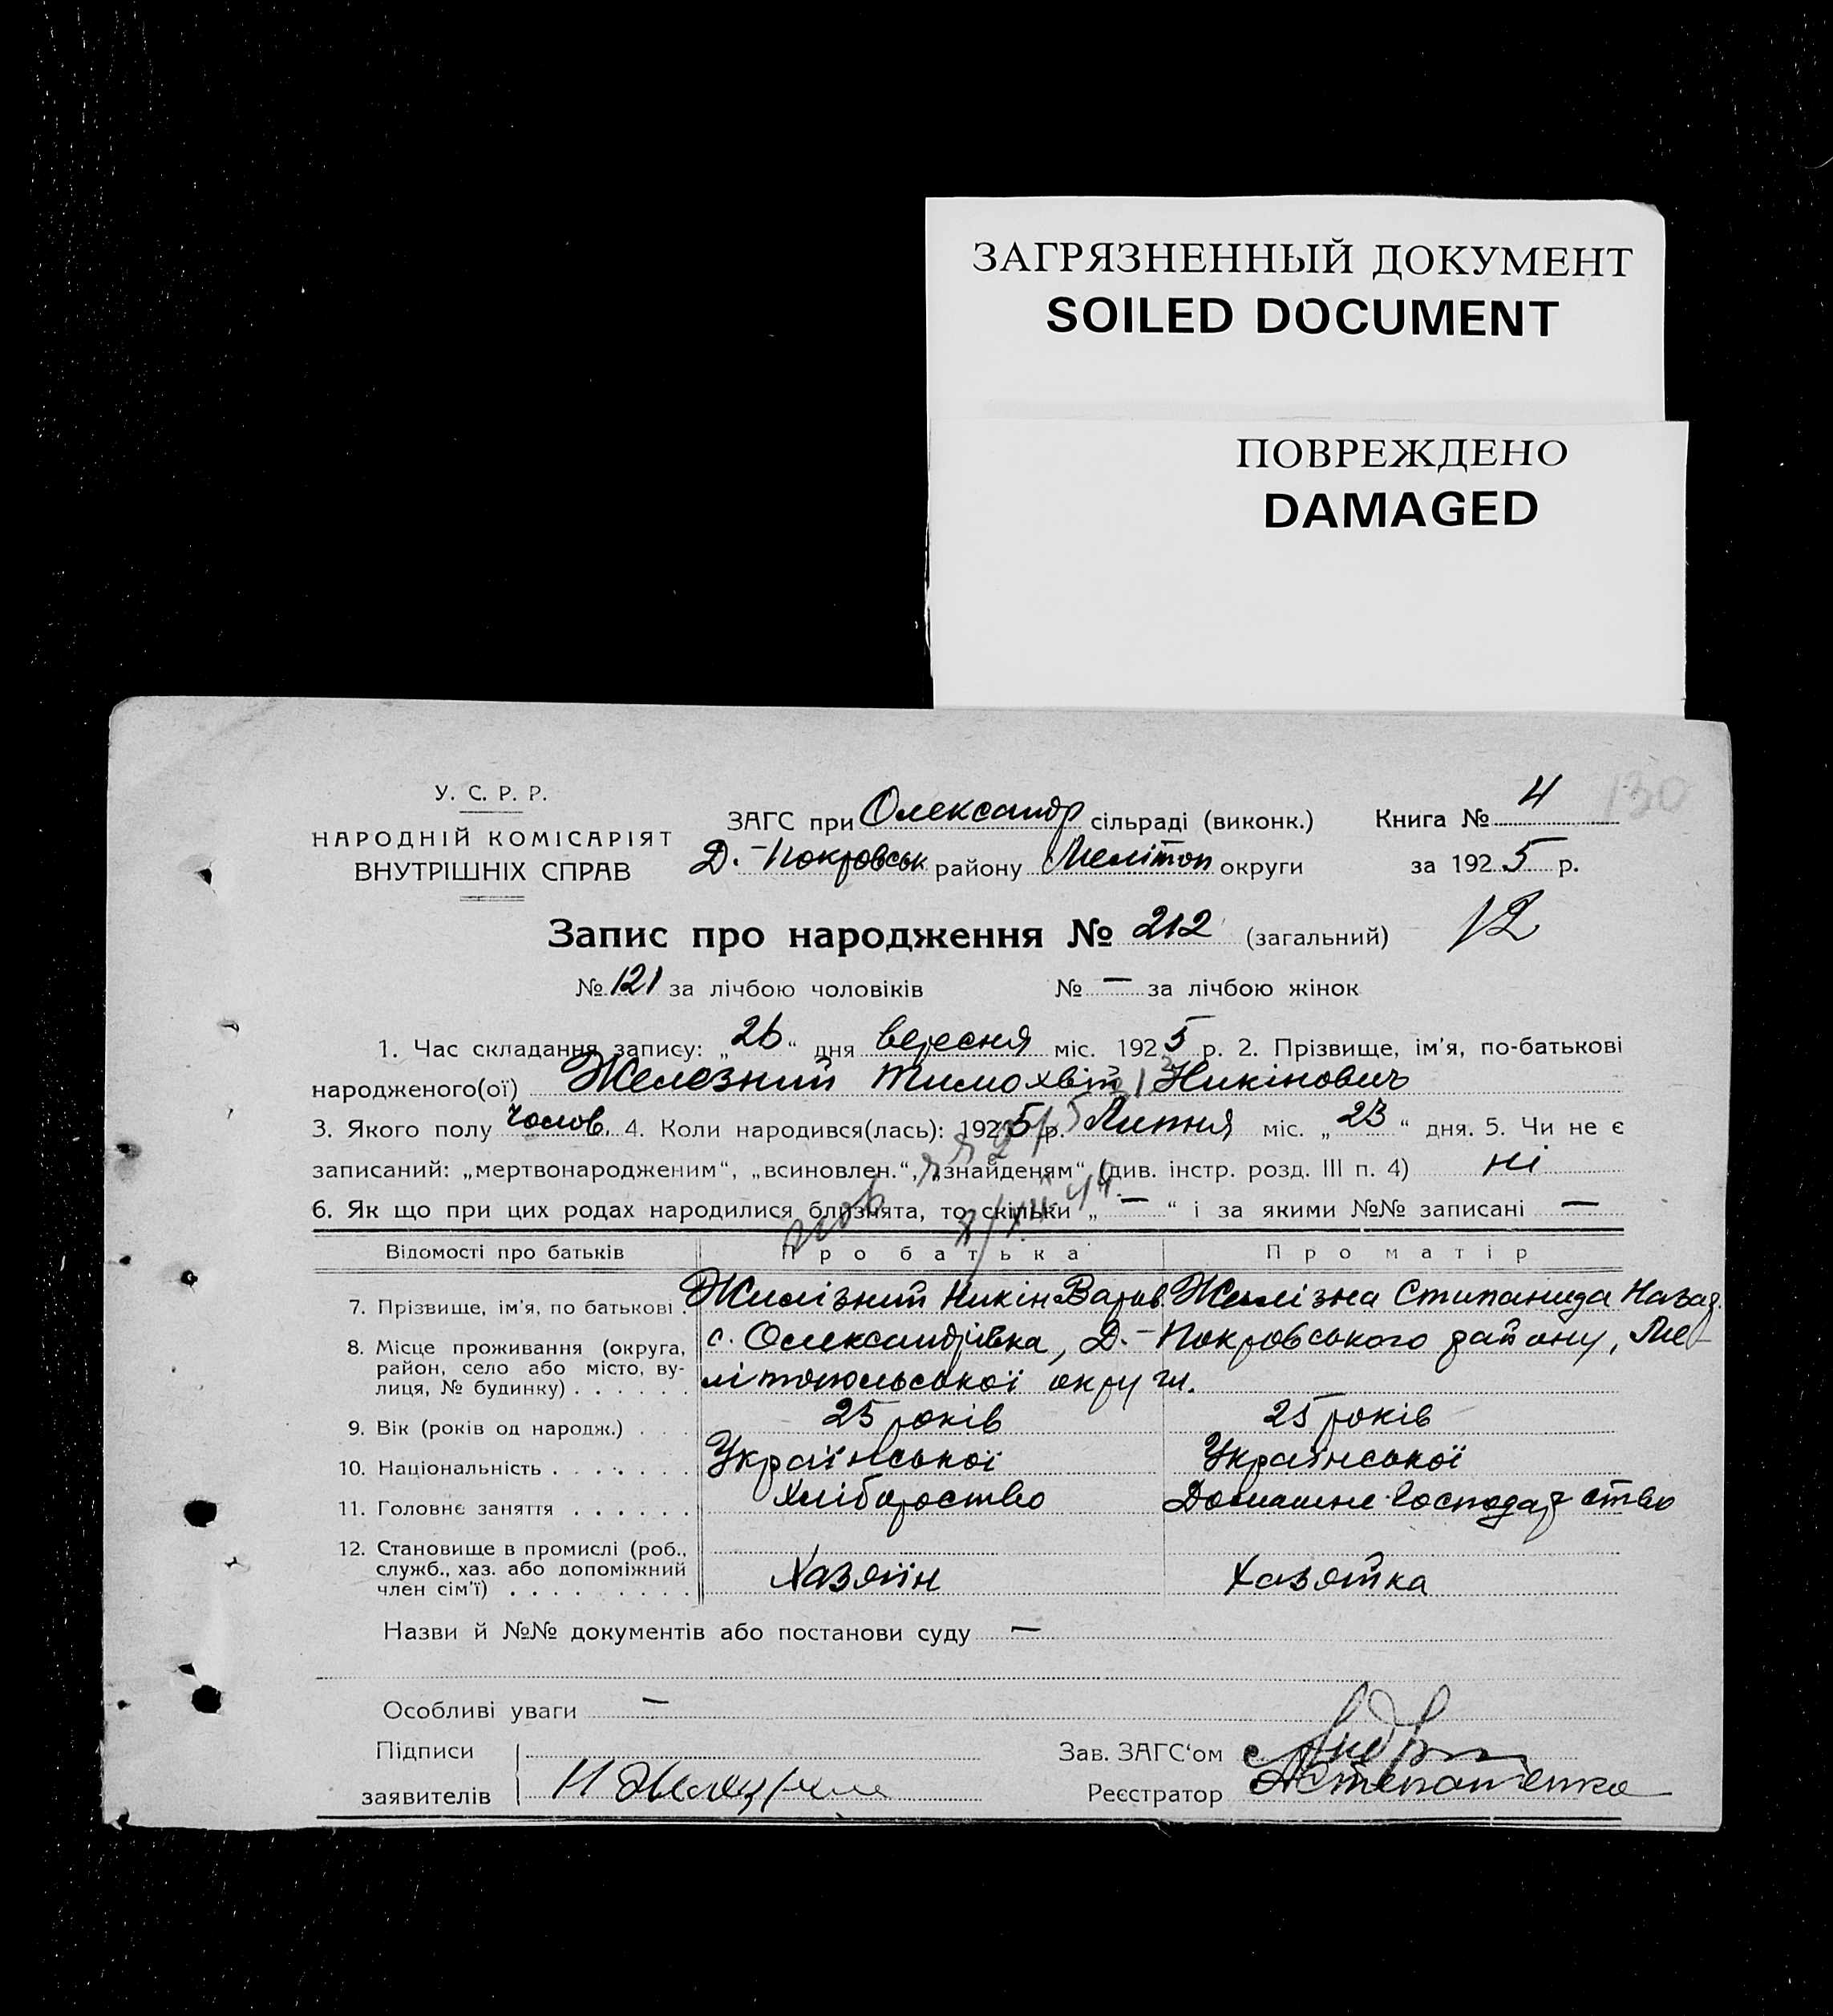 ЗАГРЯЗНЕННЫЙ ДОКУМЕНТ
SOILED DOCUMENT
ПОВРЕЖДЕНО
DAMAGED
130
У. С. Р. Р.
НАРОДНІЙ КОМІСАРІЯТ
ВНУТРІШНІХ СПРАВ
ЗАГС при Олександр сільраді (виконк.) Книга № 4
Д.-Покровськ району Мелітоп округи за 1925 р.
Запис про народження № 212 (загальний) 12
№ 121 за лічбою чоловіків № — за лічбою жінок
1. Час складання запису: „26“ дня вересня міс. 1925 р. 2. Прізвище, ім'я, по-батькові
народженого(ої) Железний Тимохвій Никінович
3. Якого полу чолов. 4. Коли народився(лась): 1925 р. Липня міс. „23“ дня. 5. Чи не є
записаний: „мертвонародженим“, „всиновлен.“, „знайденям“ (див. інстр. розд. III п. 4) ні
6. Як що при цих родах народилися близнята, то скільки „—“ і за якими №№ записані —
Відомості про батьків Про батька Про матір
7. Прізвище, ім'я, по батькові . Жилізний Никін Варив. Жилізна Стипанида Назар.
8. Місце проживання (округа, район, село або місто, вулиця, № будинку) . . . . . . с. Олександрівка, Д.-Покровського району, Ме-
літопольської округи.
9. Вік (років од народж.) . . . 25 років 25 років
10. Національність . . . . . . . Української Української
11. Головнє заняття . . . . . . Хлібороство Домашнє господарство
12. Становище в промислі (роб., служб., хаз. або допоміжний член сім'ї) . . . . . . . . . Хазяїн Хазяйка
Назви й №№ документів або постанови суду —
Особливі уваги —
Підписи
заявителів
Зав. ЗАГС'ом
Реєстратор Степаненко